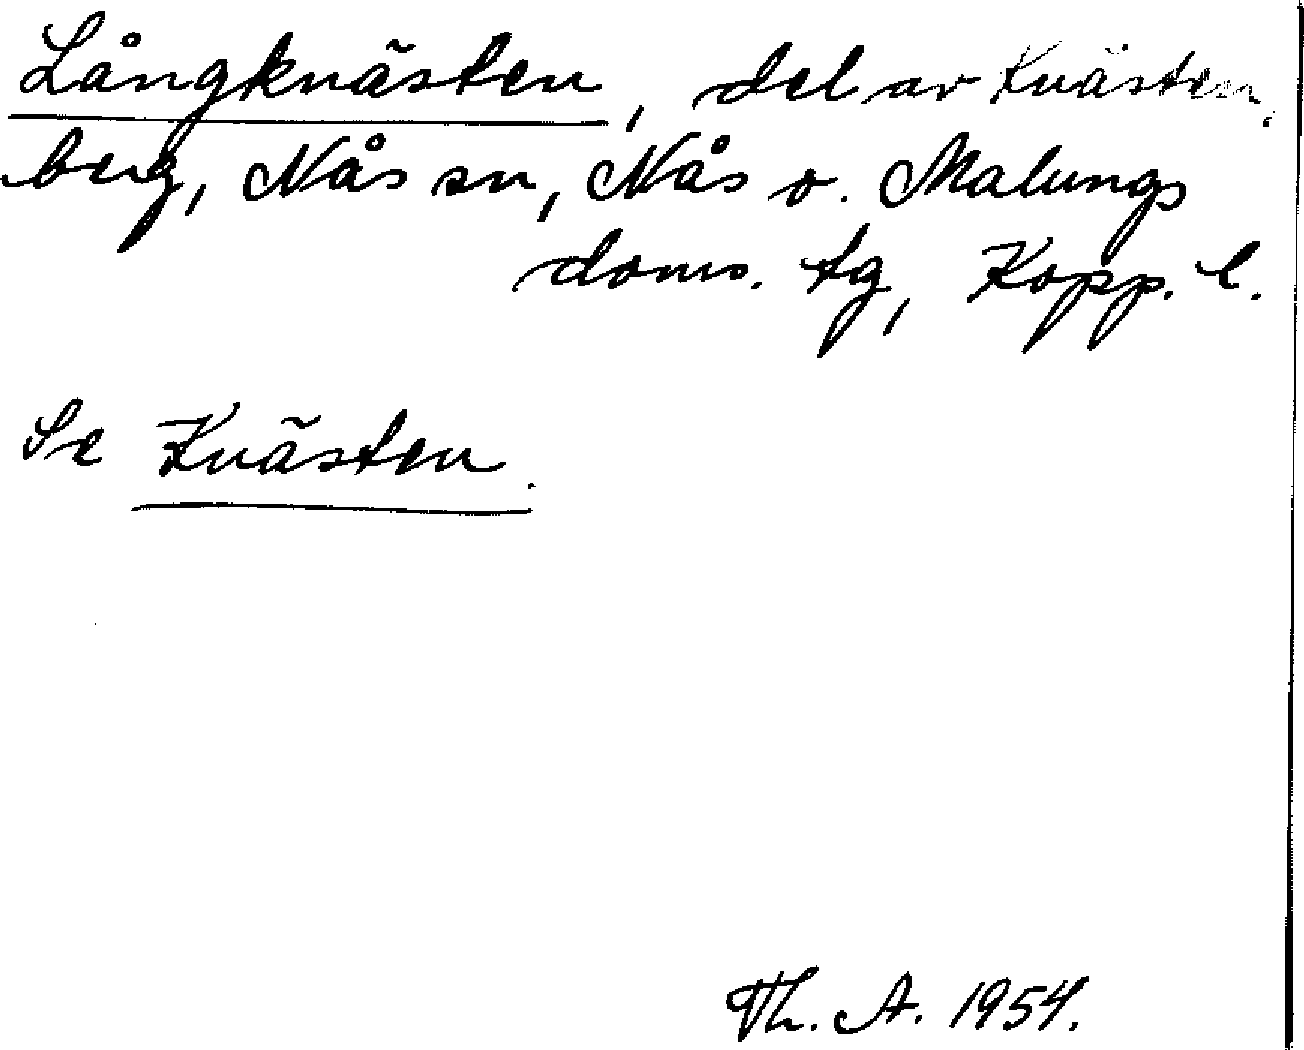 Långknästen, del av Knästen,
berg, Nås sn, Nås o. Malungs
doms. tg, Kopp. l.
Se Knästen.
Th. A. 1954.